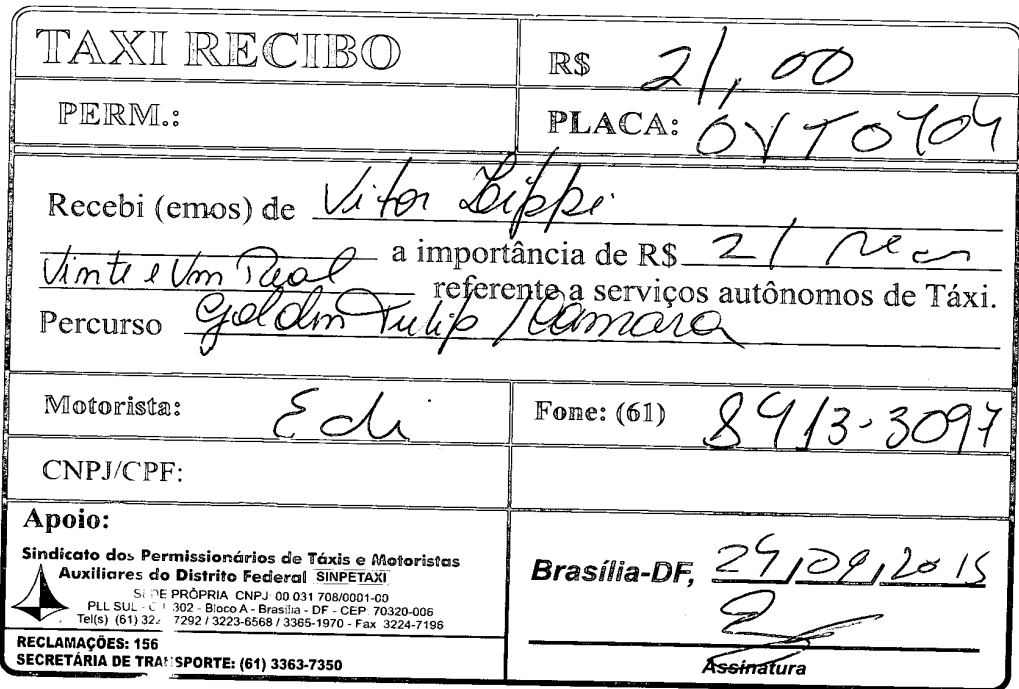 TAXI RECIBO
R$ 21,00
PERM.:
PLACA: OVT0704
Recebi (emos) de Vitor Lippi
a importância de R$ 21 reais
Vinte e Um Real referente a serviços autônomos de Táxi.
Percurso Goldin Tulip / Camara
Motorista: Edi
Fone: (61) 8913-3097
CNPJ/CPF:
Apoio:
Sindicato dos Permissionários de Táxis e Motoristas
Auxiliares do Distrito Federal SINPETAXI
SEDE PRÓPRIA CNPJ: 00.031.708/0001-00
PLL SUL - 302 - Bloco A - Brasília - DF - CEP: 70320-006
Tel(s) (61) 7292 / 3223-6568 / 3365-1970 - Fax 3224-7196
RECLAMAÇÕES: 156
SECRETÁRIA DE TRANSPORTE: (61) 3363-7350
Brasília-DF, 29/09/2015
Assinatura